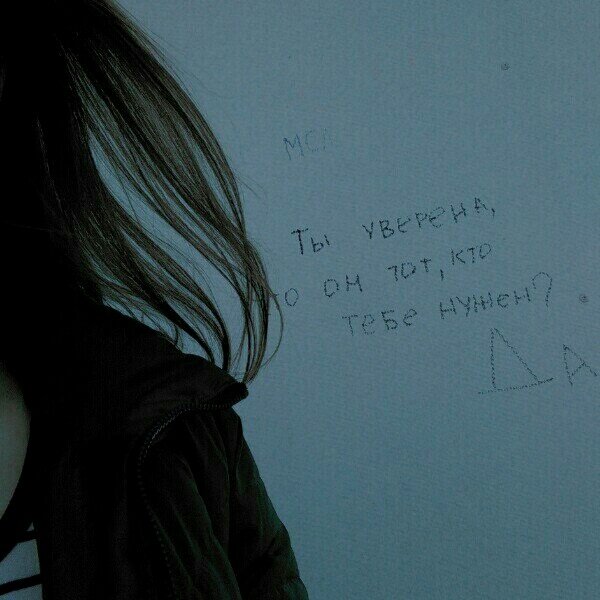 МСА
Ты уверена,
то он тот, кто
тебе нужен?
Да